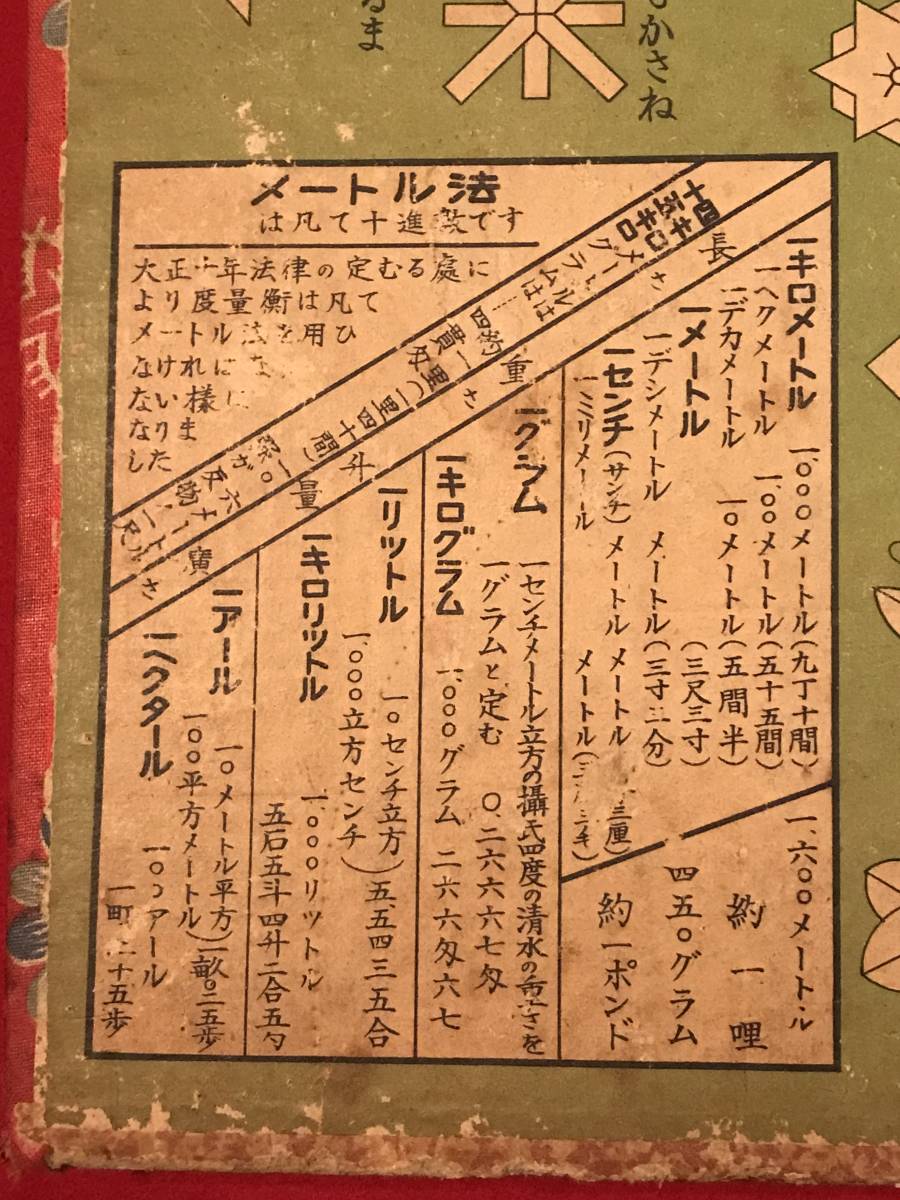 るま
かさね
メートル法
は凡て十進数です
大正十年法律の定むる處に
より度量衡は凡て
メートル法を用ひ
なければ
ない様に
なりま
した
四キロ
十五キロ
メートルは
グラムは
四貫匁
一里(一里四十間)
長さ
一キロメートル 一、〇〇〇メートル(九丁十間)
一ヘクメートル 一〇〇メートル(五十五間)
一デカメートル 一〇メートル(五間半)
一メートル (三尺三寸)
一デシメートル メートル(三寸三分)
一センチ(サンチ)メートル メートル 三厘)
一ミリメートル メートル(三毛)
一、六〇〇メートル
約一哩
四五〇グラム
約一ポンド
重さ
一グラム 一センチメートル立方の攝氏四度の清水の重さを
一グラムと定む 〇.二六六六七匁
一キログラム 一、〇〇〇グラム 二六六匁六七
升量
一リットル 一〇センチ立方)五.五四三五合
一、〇〇〇立方センチ)
一キロリットル 一、〇〇〇リットル
五石五斗四升二合五勺
廣さ
一アール 一〇メートル平方)一畝〇二五歩
一〇〇平方メートル)
一ヘクタール 一〇〇アール
一町二十五歩